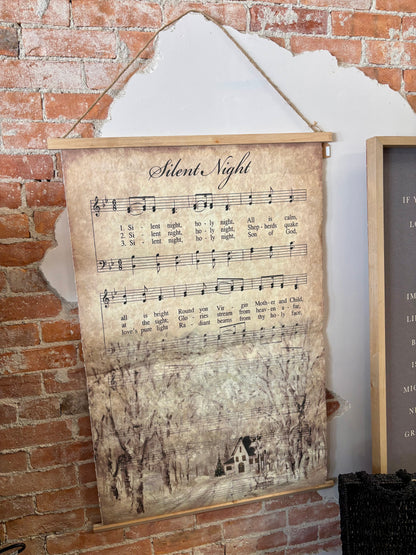 Silent Night
1. Si - lent night, ho - ly night, All is calm,
2. Si - lent night, ho - ly night, Shep - herds quake
3. Si - lent night, ho - ly night, Son of God,
all is bright Round yon Vir - gin Moth - er and Child,
at the sight; Glo - ries stream from heav - en a - far,
love's pure light Ra - diant beams from thy ho - ly face,
IF Y